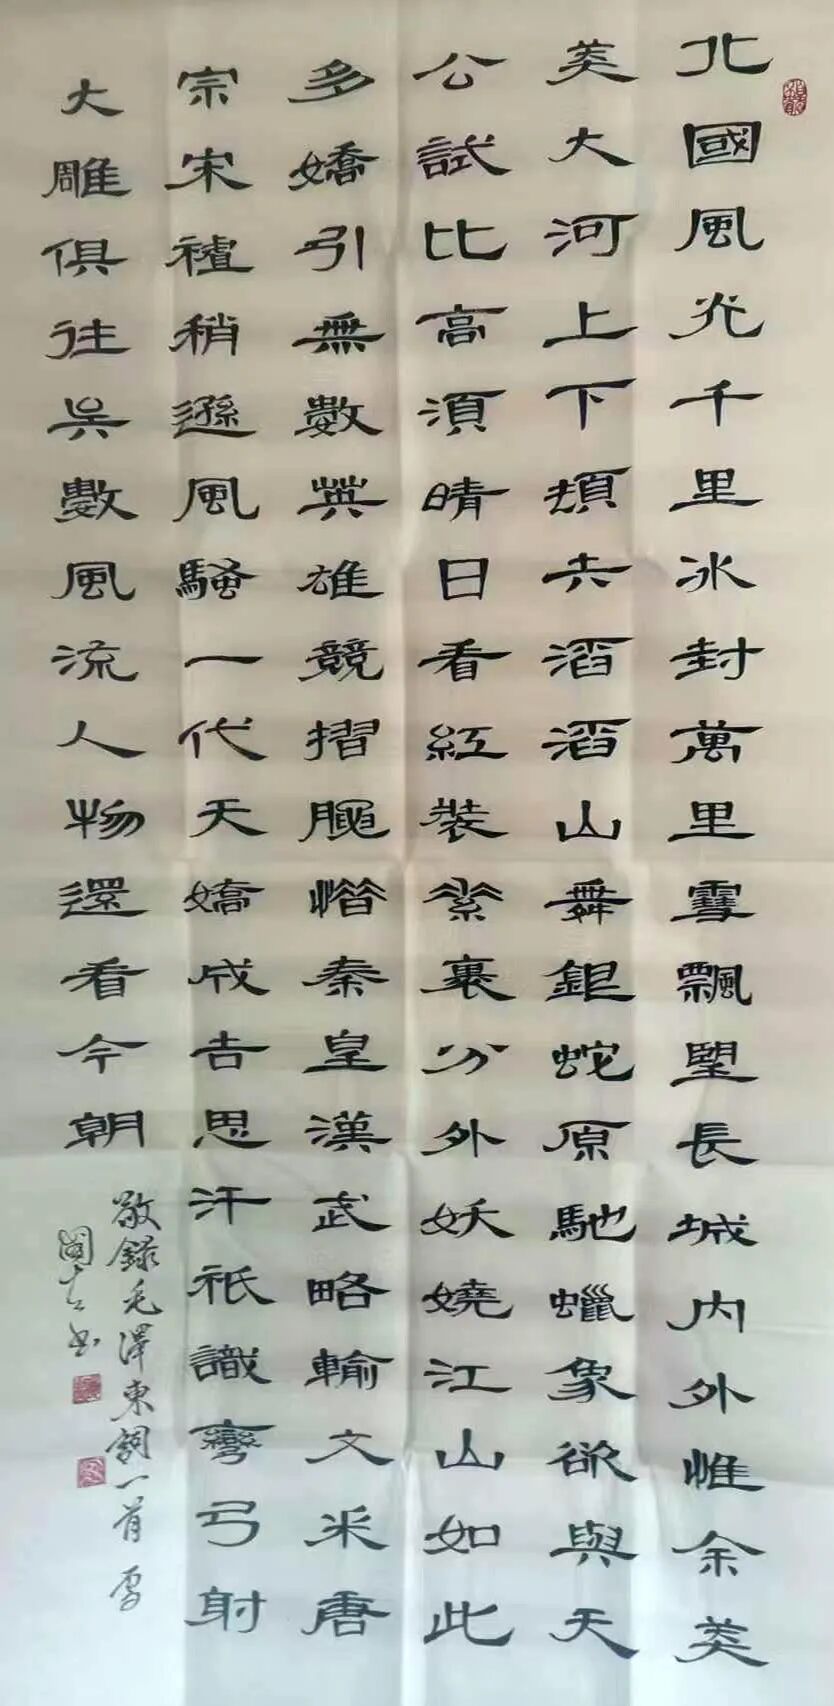 北國風光千里冰封萬里雪飄望長城内外惟余莽
莽大河上下頓失滔滔山舞銀蛇原馳蠟象欲與天
公試比高須晴日看紅裝素裹分外妖嬈江山如此
多嬌引無數英雄競摺腰惜秦皇漢武略輸文采唐
宗宋祖稍遜風騷一代天嬌成吉思汗祇識彎弓射
大雕俱往矣數風流人物還看今朝
敬錄毛澤東詞一首雪
國书